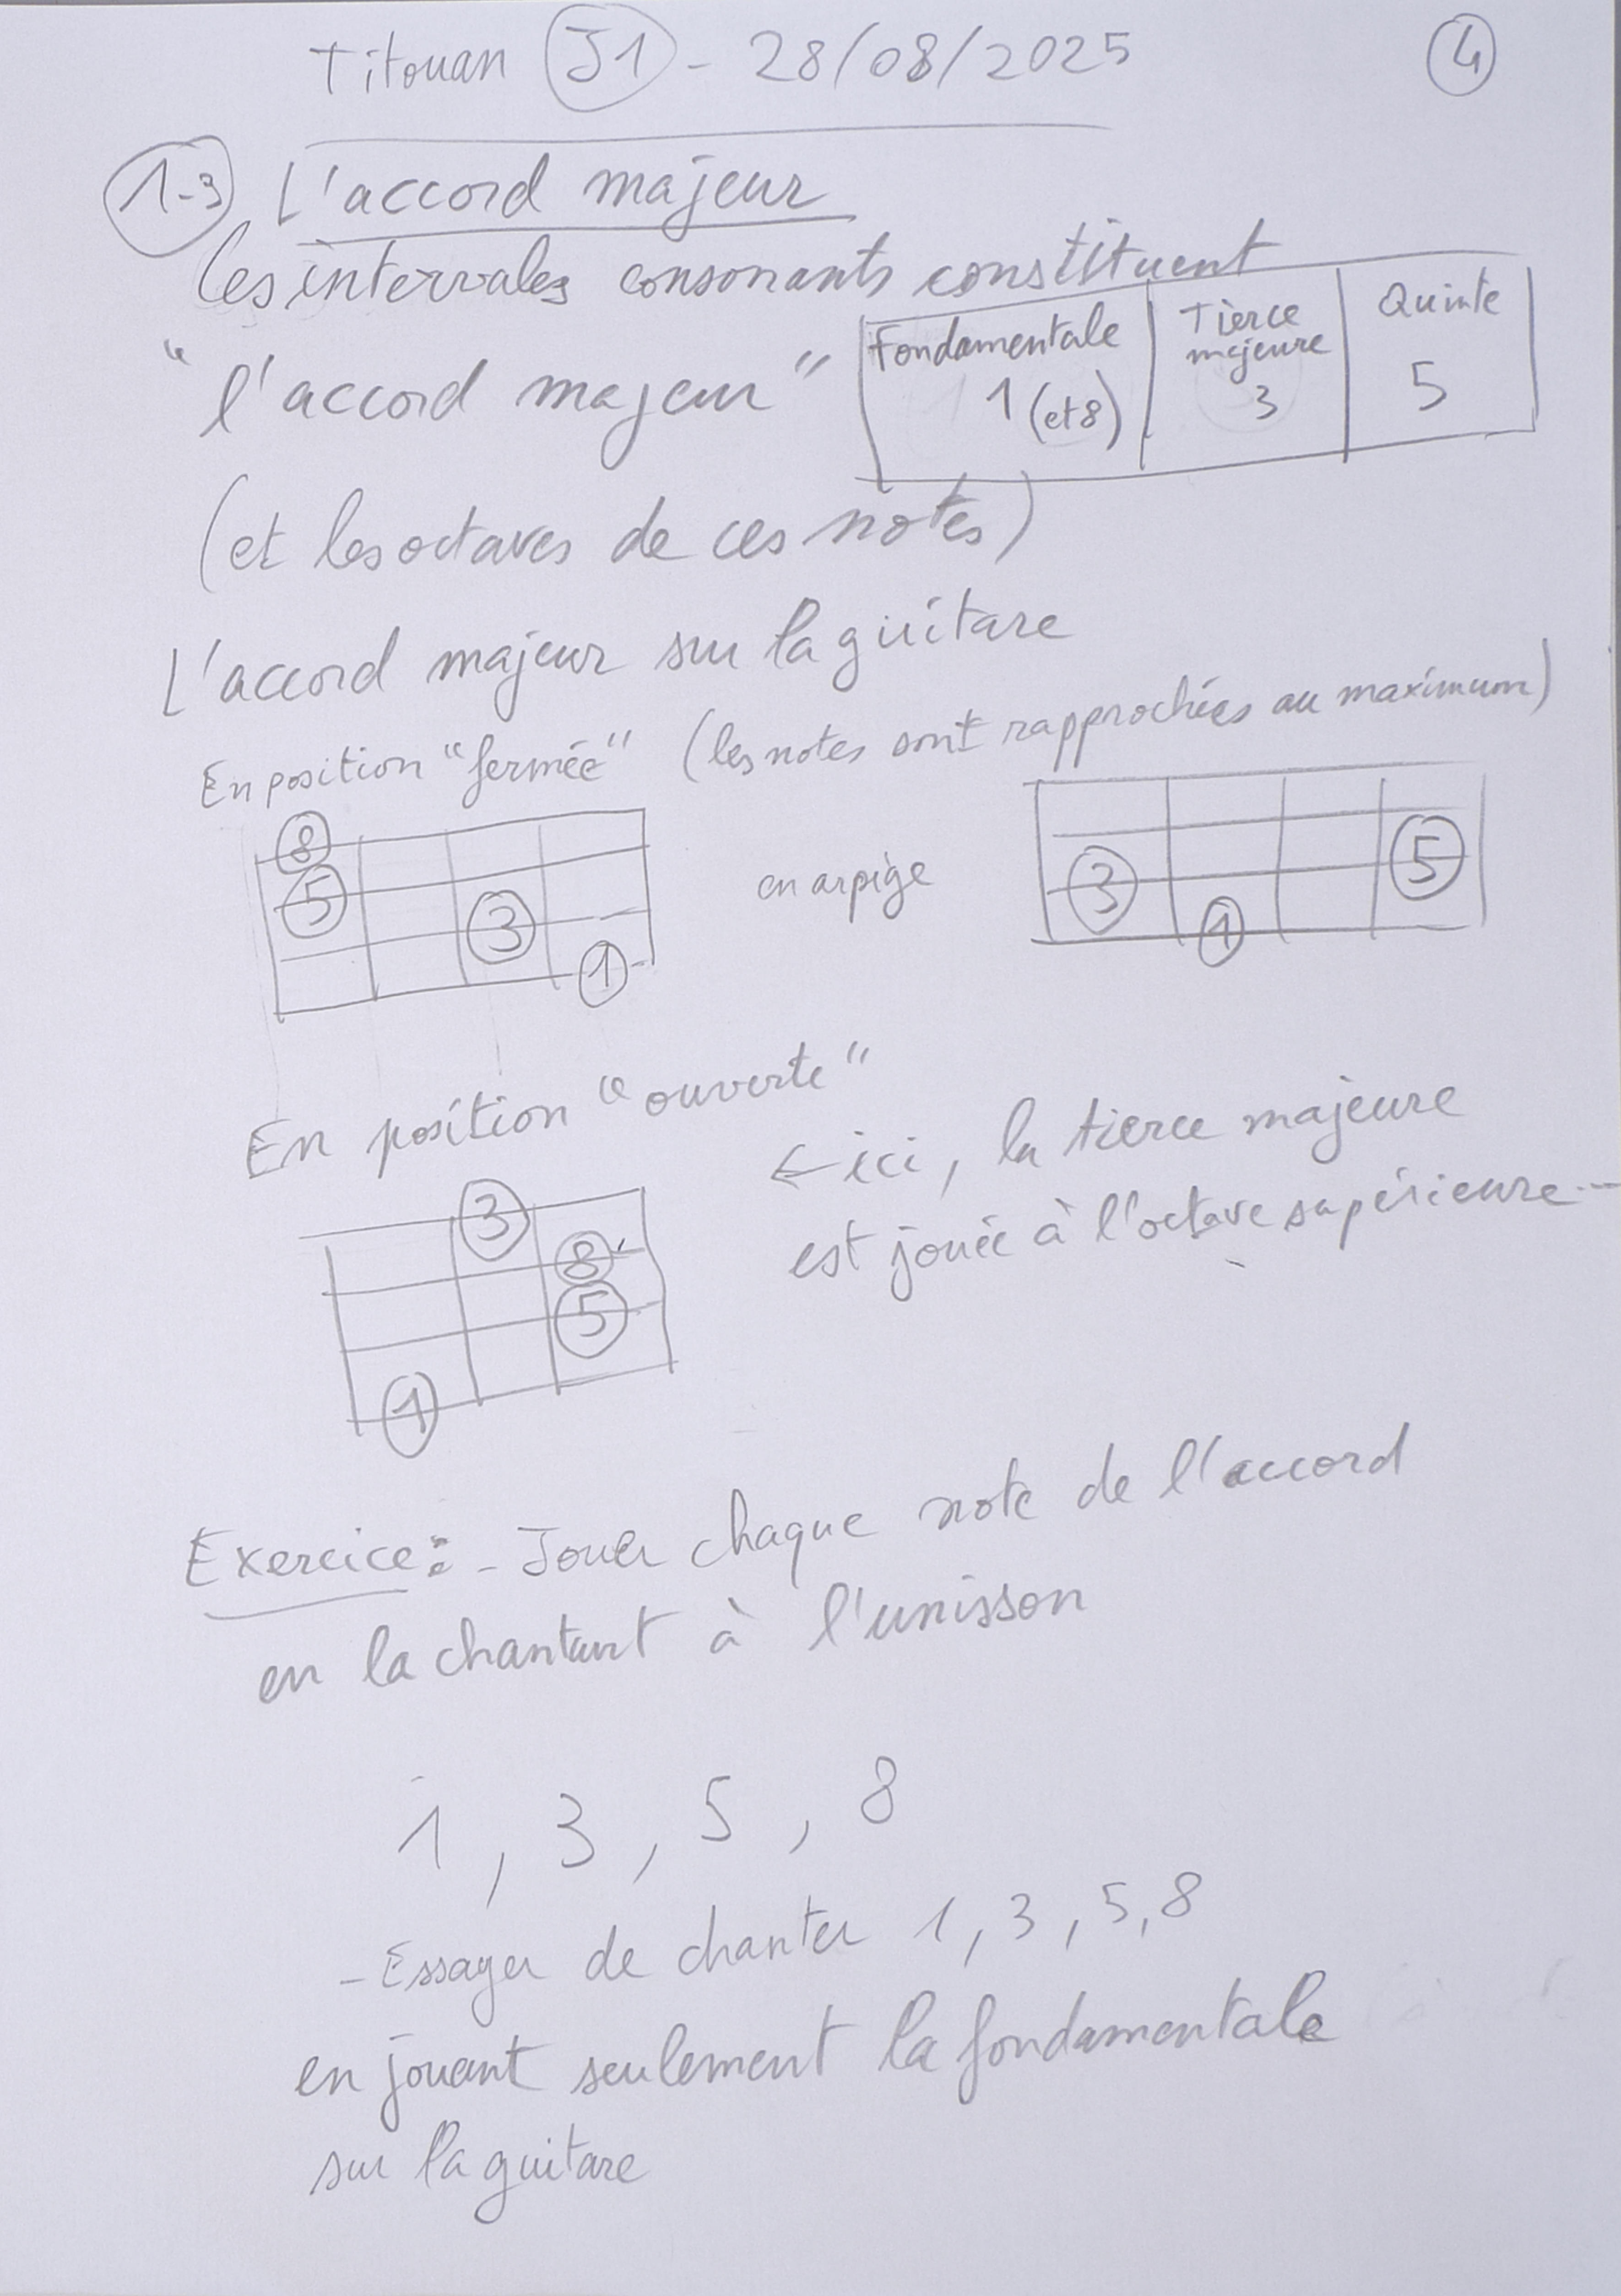 Titouan J1 - 28/08/2025 4
1-3 L'accord majeur
Les intervalles consonants constituent
"l'accord majeur"
Fondamentale Tierce majeure Quinte
1 (et 8) 3 5
(et les octaves de ces notes)
L'accord majeur sur la guitare
En position "fermée" (les notes sont rapprochées au maximum)
8
5
3
1
en arpège
3 5
1
En position "ouverte"
← ici, la tierce majeure
est jouée à l'octave supérieure...
3
8
5
1
Exercice : - Jouer chaque note de l'accord
en la chantant à l'unisson
1, 3, 5, 8
- Essayer de chanter 1, 3, 5, 8
en jouant seulement la fondamentale
sur la guitare